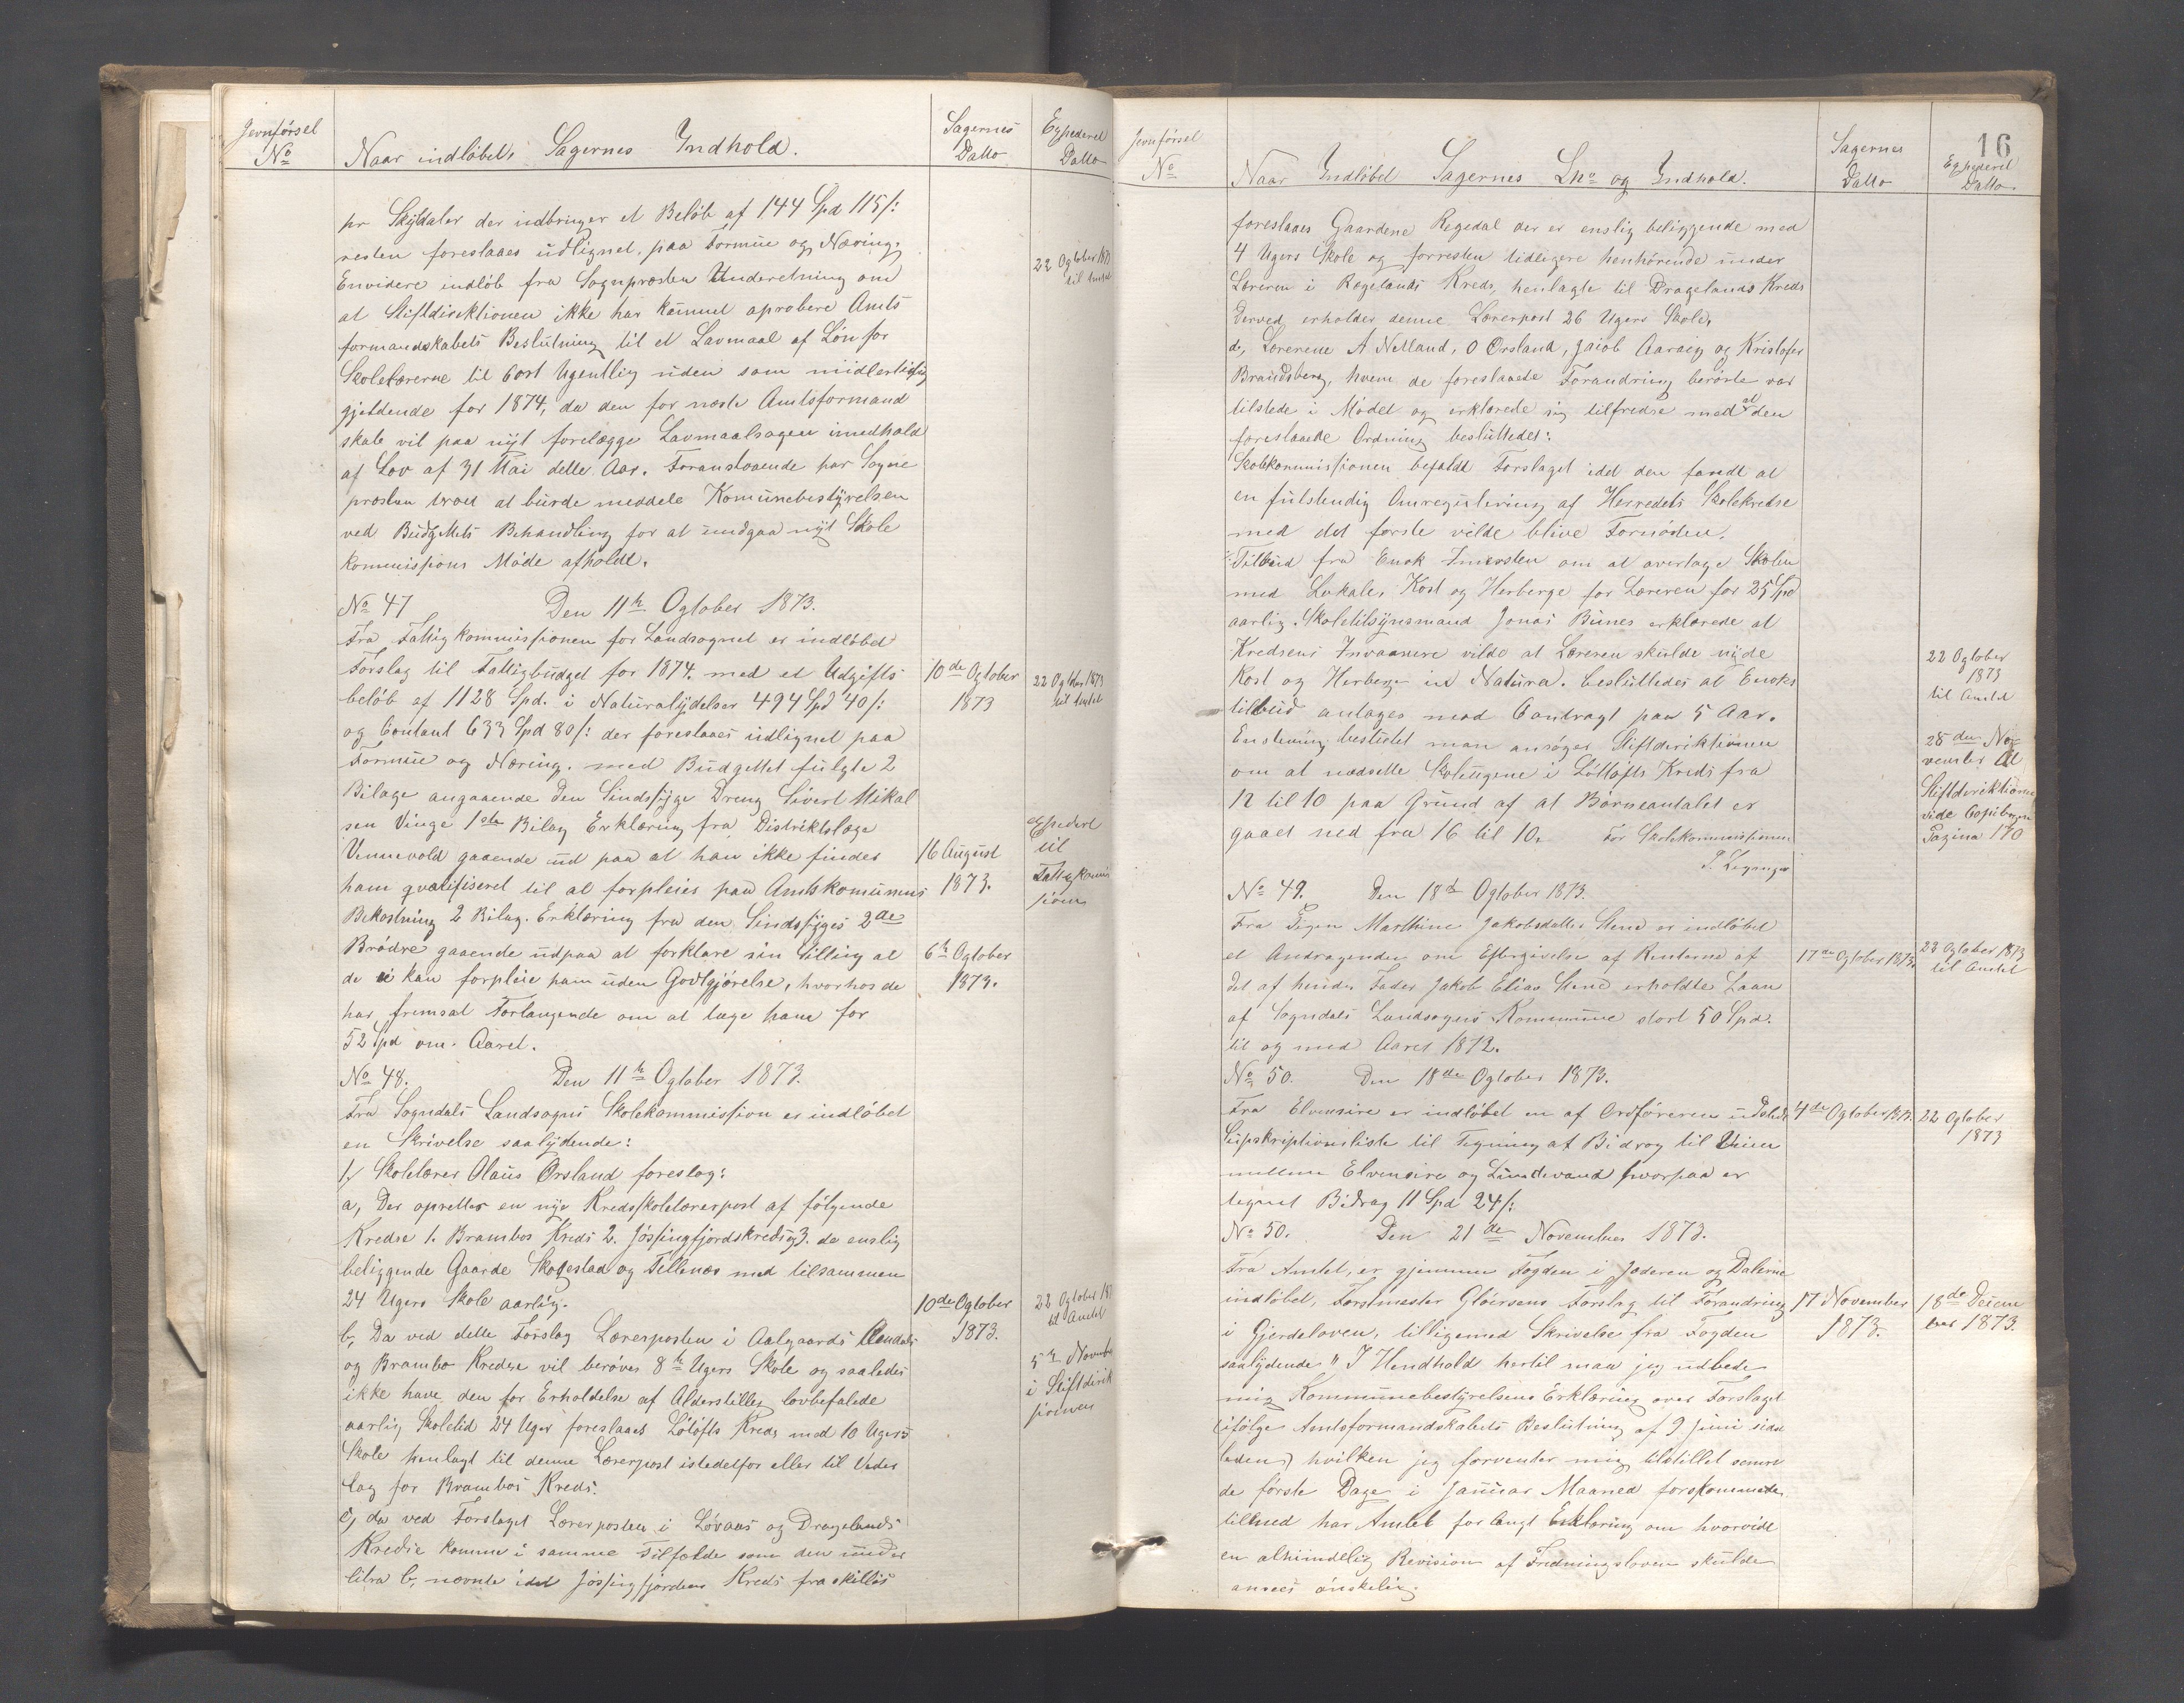 Jevnförsel
No
Naar indløbet, Sagernes Indhold.
Sagernes
Datto
Expederet
Datto
pr Skyldaler der indbringer et Beløb af 144 Spd 115/:
resten foreslaaes udlignet, paa Formue og Næring.
22 Ogtober 1873
til Amtet
Envidere indløb fra Sognpresten Underetning om
at Stiftdirektionen ikke har kunnet aprobere Amts
formandskabets Beslutning til et Lavmaal af Løn for
Skolelærerne til 6 ort Ugentlig uden som midlertidig
gjeldende for 1874, da den for næste Amtsformand
skab vil paa nyt forelægge Lavmaalsagen imedhold
af Lov af 31 Mai dette Aar. Foranstaaende har Sogne
presten troed at burde meddele Komunebestyrelsen
ved Budgettets Behandling for at undgaa nyt Skole
kommissions Møde afholdt.
No 47 Den 11te Ogtober 1873.
Fra Fattigkommissionen for Landsognet er indløbet
Forslag til Fattigbudget for 1874. med et Udgifts
10de Ogtober
1873
22 Ogtober 1873
til Amtet
beløb af 1128 Spd. i Naturalydelser 494 Spd 40/:
og Contant 633 Spd 80/: der foreslaaes udlignet paa
Formue og Næring. med Budgettet fulgte 2
Bilage angaaende den Sindssyge Dreng Sivert Mikal
sen Vinge 1ste Bilag Erklæring fra Distriktslæge
Vennevold gaaende ud paa at han ikke findes
16 August
1873.
expederet
til
Fattigkomis
sionen
ham qvalifiseret til at forpleies paa Amtskomunens
Bekostning 2 Bilag. Erklæring fra den Sindssyges 2de
Brødre gaaende udpaa at forklare sin Stilling at
6te Ogtober
1873.
de ei kan forpleie ham uden Godtgjørelse, hvorhos de
har fremsat Forlangende om at tage ham for
52 Spd om Aaret.
No 48. Den 11te Ogtober 1873.
Fra Sogndals Landsogns Skolekommission er indløbet
en Skrivelse saalydende:
1, Skolelærer Olaus Ørsland foreslog:
a, Der oprettes en nye Kredsskolelærerpost af følgende
Kredse 1. Brambos Kreds 2. Jøssingfjordskreds og 3. de enslig
beliggende Gaarde Skogestad og Tellenæs med tilsammen
24 Ugers Skole aarlig.
10de Ogtober
1873.
22 Ogtober 18
til Amtet
5te Novemb
i Stiftdirek
sionen
b, Da ved dette Forslag Lærerposten i Aalgaards
og Brambo Kredse vil berøves 8te Ugers Skole og saaledes
ikke have den for Erholdelse af Alderstillæg lovbefalede
aarlig Skoletid 24 Uger foreslaaes Løtofts Kreds med 10 Ugers
Skole henlagt til denne Lærerpost istedetfor eller til Veder
lag for Brambos Kreds.
c, da ved Forslaget Lærerposten i Løvaas og Dragelands
Kredse komme i samme Tilfælde som den under
litra b, nævnte idet Jøssingfjordens Kreds fraskilles
Jevnførsel
No
Naar Indløbet Sagernes Lno og Indhold.
Sagernes
Datto
16
Expederet
Datto
foreslaaes Gaardene Regedal der er enslig beliggende med
4 Ugers Skole og forresten tidligere henhørende under
Læreren i Regelands Kreds, henlagte til Dragelands Kreds
Derved erholder denne Lærerpost 26 Ugers Skole.
d, Lærerene A Netland, O Ørsland, Jacob Aarsig og Kristofer
Brandsberg, hvem de foreslaaede Forandring berørte var
tilstede i Mødet og erklærede sig tilfredse med at den
foreslaaede Ordning besluttedes:
Skolekommissionen befaldt Forslaget idet den fandt at
en fulstendig Omregulering af Herredets Skolekredse
med det første vilde blive Fornøden.
Tilbud fra Enok om at overtage Skolen
med Lokale, Kost og Herberge for Læreren for 25 Spd
aarlig. Skoletilsynsmand Jonas Bunes erklærede at
Kredsens Invaanere vilde at Læreren skulde nyde
Kost og Herberge in Natura. besluttedes at Enoks
tilbud antages mod Contragt paa 5 Aar.
22 Ogtober
1873
til Amtet
Enstemig bestutet man ansøger Stiftderiktionen
om at nedsette Skoleugene i Løttofts Kreds fra
12 til 10 paa Grund af at Børneantalet er
gaaet ned fra 16 til 10. For Skolekommissionen
25de No-
vember til
Stiftderiktionen
vide Copibogen
Pagina 170
No 49. Den 18de Ogtober 1873.
Fra Pigen Marthine Jakobsdatter Stene er indløbet
et Andragende om Eftergivelse af Renterne af
17de Ogtober 1873.
23 Ogtober 1873
til Amtet
det af hendes Fader Jakob Elias Stene erholdte Laan
af Sogndals Landsogns Kommune stort 50 Spd.
til og med Aaret 1872.
No 50. Den 18de Ogtober 1873.
Fra Elvensire er indløbet en af Ordføreren udstedt
4de Ogtober 1873.
22 Ogtober
1873
Supskriptionsliste til Tegning af Bidrag til Veien
mellem Elvensire og Lundevand hvorpaa er
tegnet Bidrag 11 Spd 24/:
No 50. Den 21de November 1873.
Fra Amtet, er gjennem Fogden i Jæderen og Dalerne
indløbet, Forstmester Gløersens Forslag til Forandring
17 November
1873.
18de Decem
ber 1873.
i Gjerdeloven, tilligemed Skrivelse fra Fogden
saalydende " I Hendhold hertil maa jeg udbede
mig Kommunebestyrelsens Erklæring over Forslaget
(ifølge Amtsformandskabets Beslutning af 9 Juni sidst
leden) hvilken jeg forventer mig tilstillet senere
de første Dage i Januar Maaned førstkommende,
tillmed har Amtet forlangt Erklæring om hvorvidt
en alhiindelig Revision af Fredningsloven skulde
ansees ønskelig.